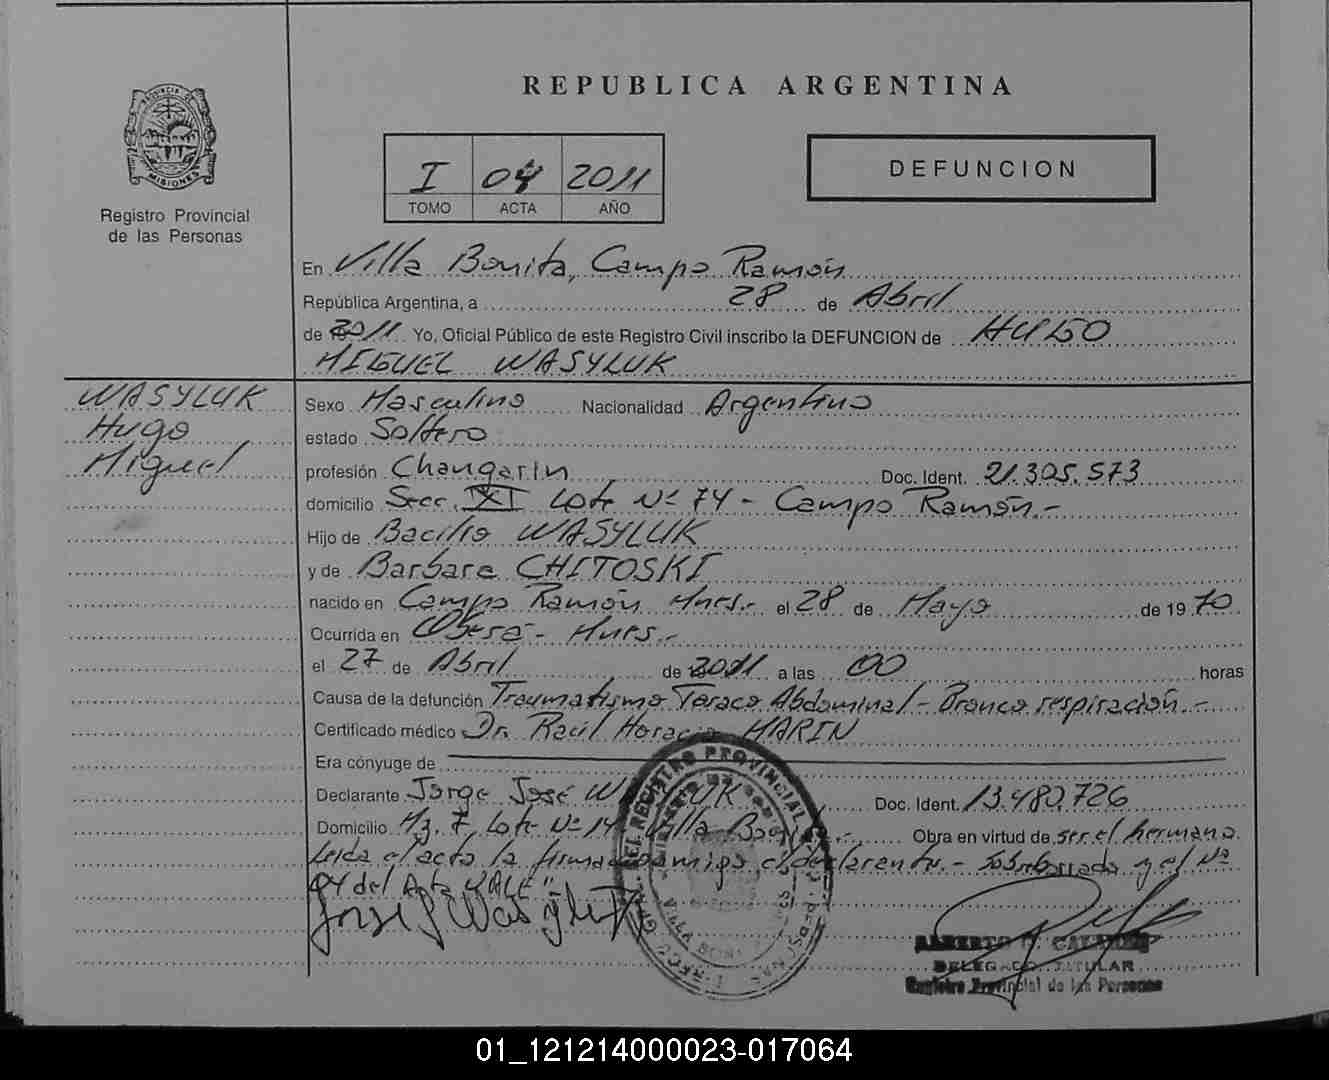 REPUBLICA ARGENTINA
PROVINCIA DE
MISIONES
Registro Provincial
de las Personas
I 04 2011
TOMO ACTA AÑO
DEFUNCION
En Villa Bonita, Campo Ramón
República Argentina, a 28 de Abril
de 2011 Yo, Oficial Público de este Registro Civil inscribo la DEFUNCION de HUGO
MIGUEL WASYLUK
WASYLUK
Hugo
Miguel
Sexo Masculino Nacionalidad Argentino
estado Soltero
profesión Changarin Doc. Ident. 21.305.573
domicilio Secc. XI Lote Nº 74 - Campo Ramón.-
Hijo de Bacilio WASYLUK
y de Barbara CHITOSKI
nacido en Campo Ramón Mnes.- el 28 de Mayo de 1970
Ocurrida en Oberá - Mnes.-
el 27 de Abril de 2011 a las 00 horas
Causa de la defunción Traumatismo Toraco Abdominal - Bronco respiración.-
Certificado médico Dr. Raúl Horacio MARIN
Era cónyuge de
Declarante Jorge José WASYLUK Doc. Ident. 13.480.726
Domicilio Mz. 7, Lote Nº 14 Villa Bonita.- Obra en virtud de ser el hermano.
Leida el acta la firma conmigo el declarante.- Sobreborrado y el Nº
04 del Acta "VALE"
ALBERTO
DELEGADO TITULAR
Registro Provincial de las Personas
01_121214000023-017064